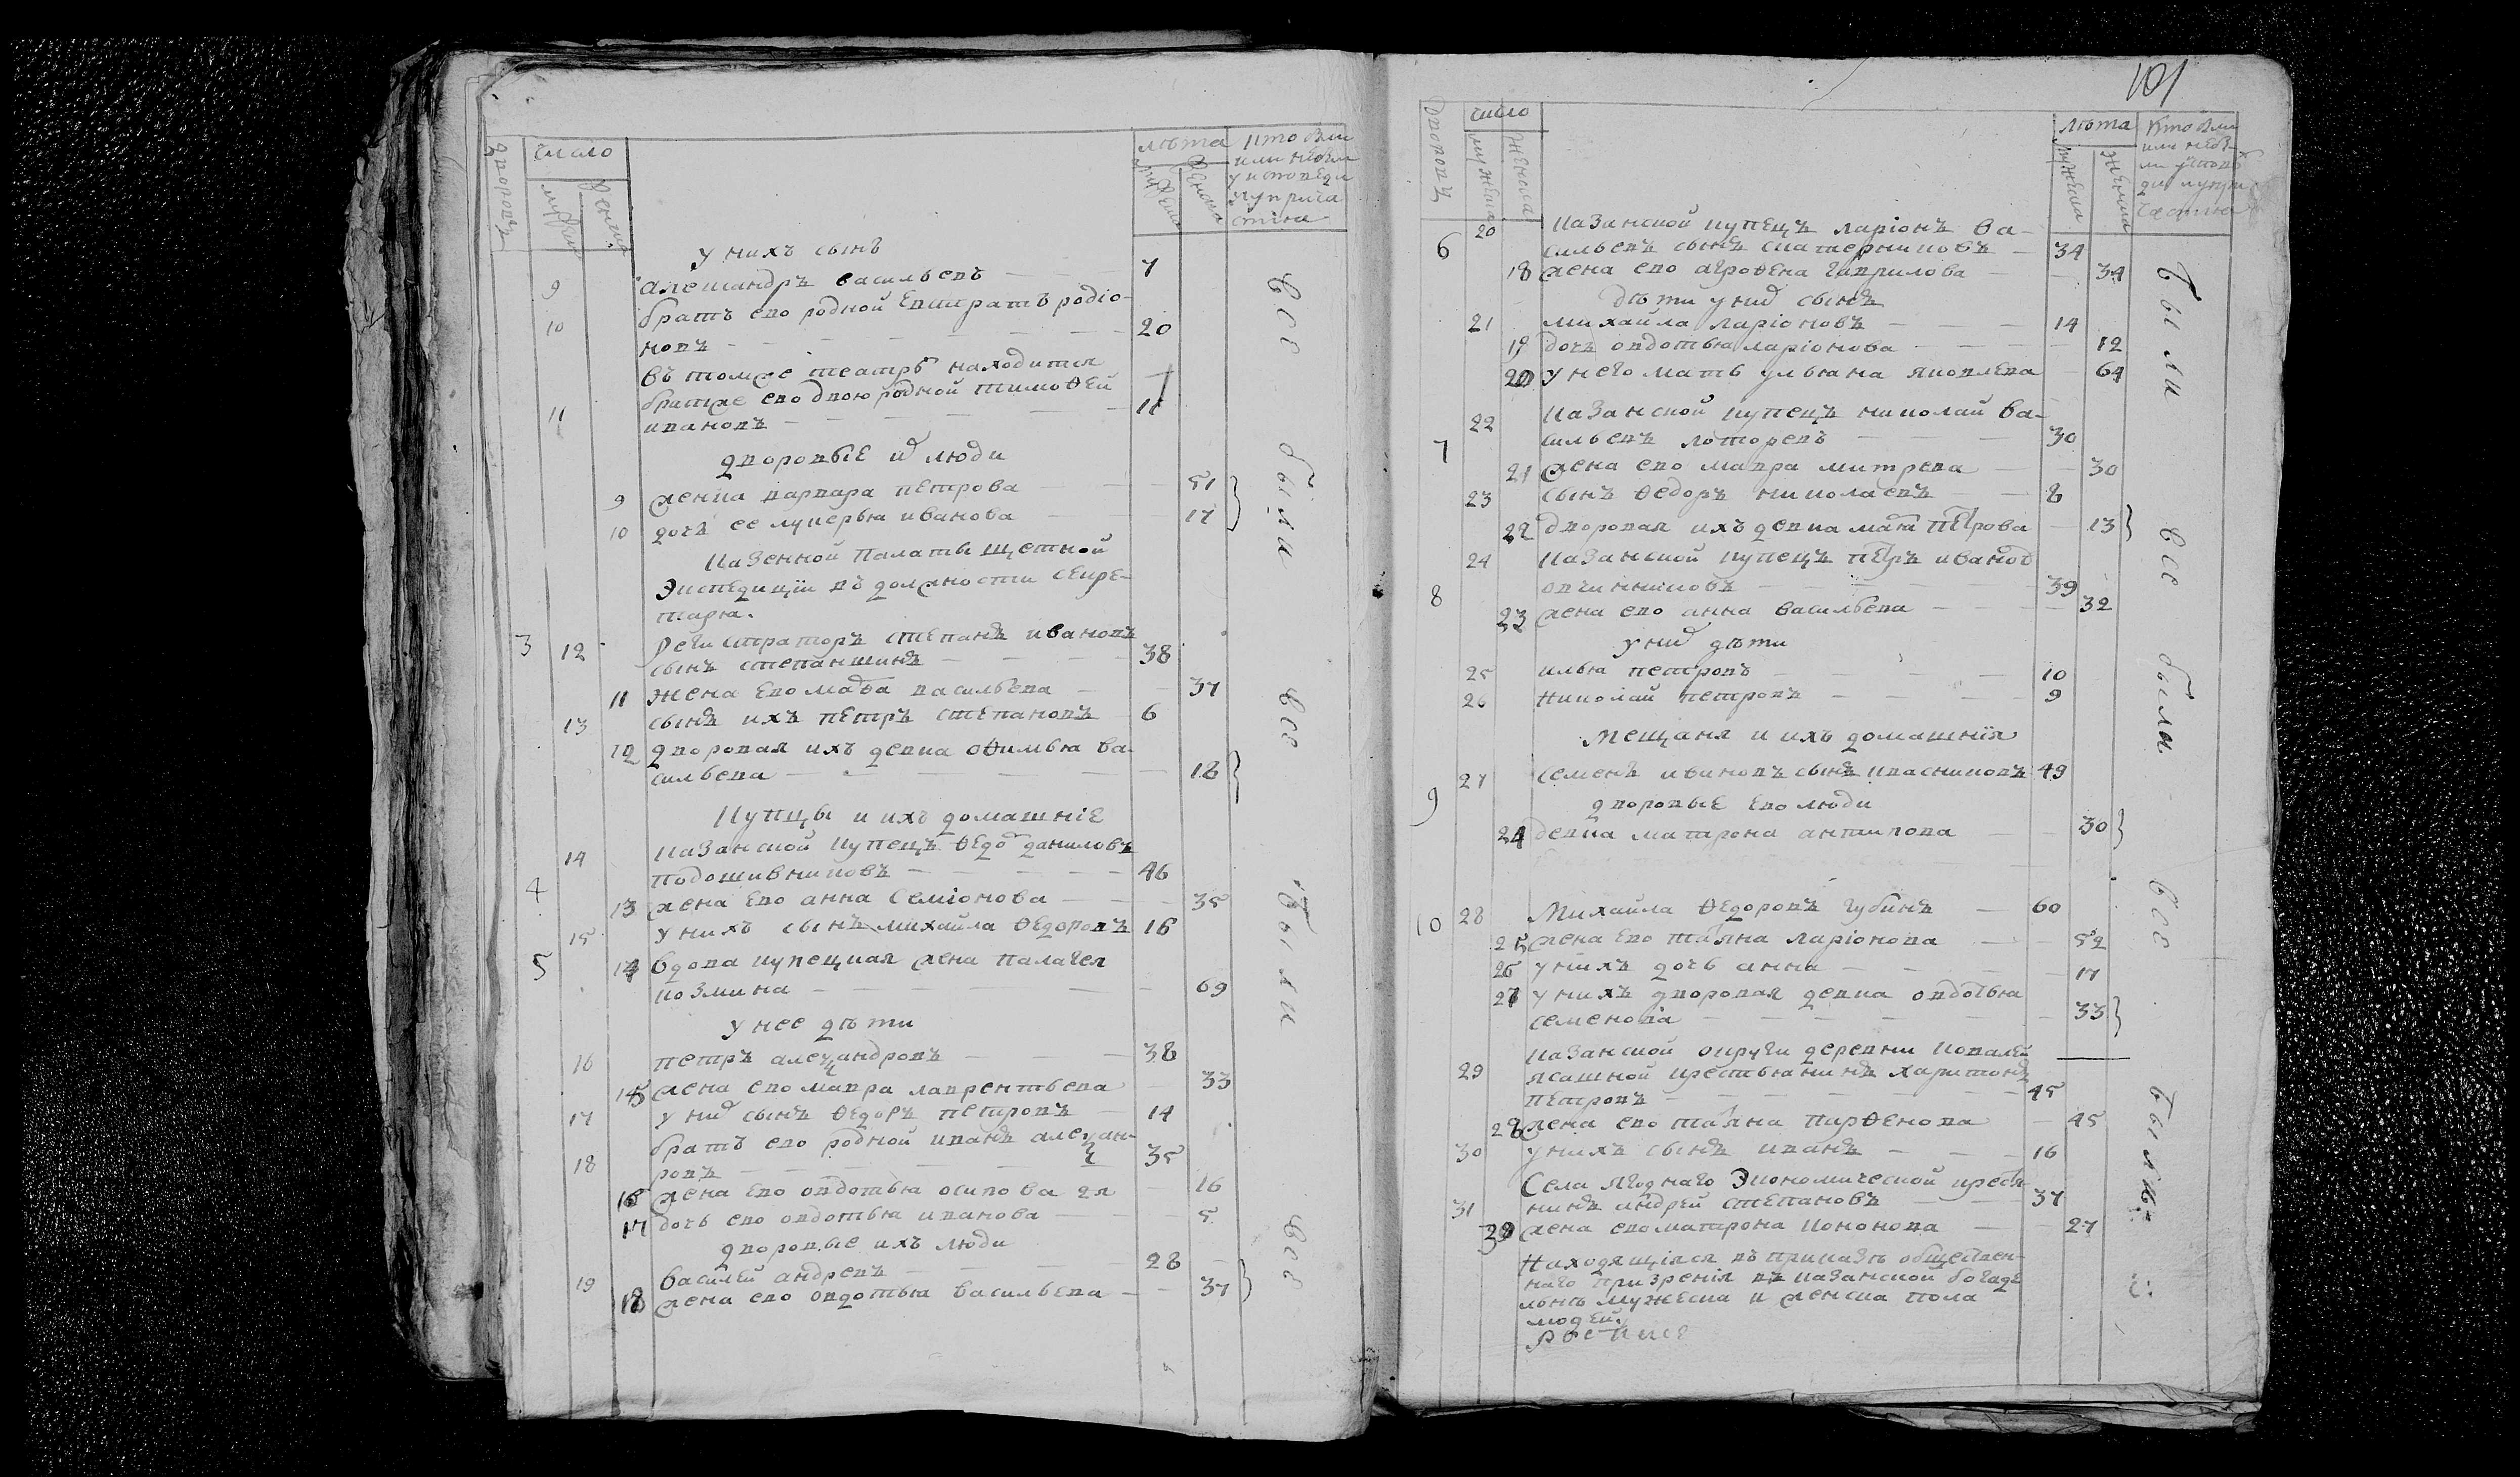 число
лѣта
кто были
или не были
у исповеди
и у прича
стия
дворовъ
мужеска
женска
мужеска
женска
у нихъ сынъ
9 Александръ васильевъ 7
10 братъ ево родной Евстратъ родіо-
новъ 20
въ томже театрѣ находится
11 братже ево двоюродной тимоѳей
ивановъ 11
дворовые их люди
9 женка варвара петрова 51
10 дочь ее лукерья иванова 17
казенной палаты щетной
Экспедиціи въ должности секре-
таря.
3 12 Регистраторъ степанъ ивановъ
сынъ степаншинъ 38
11 жена Ево марѳа васильева 37
13 сынъ ихъ петръ степановъ 6
12 дворовая ихъ девка оѳимья ва-
сильева 18
купцы и ихъ домашніе
14 казанской купецъ ѳедоръ даниловъ
4 подошивниковъ 46
13 жена Ево анна семіонова 35
15 у нихъ сынъ михайла ѳедоровъ 16
5 14 вдова купецкая жена палагея
козмина 69
у нее дѣти
16 петръ александровъ 38
15 жена ево мавра лаврентьева 33
17 у них сынъ ѳедоръ петровъ 14
братъ ево родной иванъ алексан-
18 ровъ 35
16 жена Ево овдотья осипова 2я 16
17 дочь ево овдотья иванова 5
дворовые ихъ люди
19 василей андревъ 28
18 жена ево овдотья васильева 37
все были все были все
101
дворовъ
число
мужеска
женска
лѣта
мужеска
женска
кто были
или небы-
ли у испове
ди и у при
частия
20 казанской купецъ ларіонъ ва-
6 сильевъ сынъ скатерниковъ 34
18 жена ево агроѳена гаврилова 34
дѣти у них сынъ
21 михайла ларіоновъ 14
19 дочь овдотья ларіонова 12
20 у него мать ульяна яковлева 64
казанской купецъ николай ва-
22
7 сильевъ лоторевъ 30
21 жена ево мавра митрева 30
23 сынъ ѳедоръ николаевъ 8
22 дворовая ихъ девка петрова 13
24 казанской купецъ петръ иванов
8 овчинниковъ 39
23 жена ево анна васильева 32
у них дѣти
25 илья петровъ 10
26 николай петровъ 9
мещаня и ихъ домашнія
27 семенъ ивановъ сынъ квасниковъ 49
9 дворовые Ево люди
24 девка матрона антипова 30
10 28 Михайла ѳедоровъ губинъ 60
25 жена Ево татьяна ларіонова 52
26 у нихъ дочь анна 17
27 у нихъ дворовая девка овдотья
семенова 33
казанской округи деревни ковалей
29 ясашной крестьянинъ харитонъ
петровъ 45
28 жена ево татьяна парѳенова 45
30 у нихъ сынъ иванъ 16
Села ягоднаго Экономической кресть
31 нинъ андрей степановъ 37
29 жена ево матрона кононова 27
Находящіяся въ приказѣ обществен-
наго призренія въ казанской богаде
льнѣ мужеска и женска пола
людей.
были все были все были